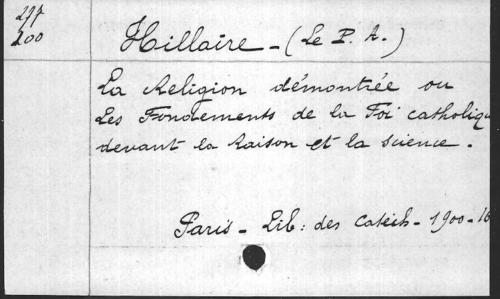 297
200
Hillaire - (Le P. A.)
La Religion démontrée ou
Les Fondements de la Foi catholiqu
devant la Raison et la science.
Paris - Lib: des Catéch - 1900 - 16